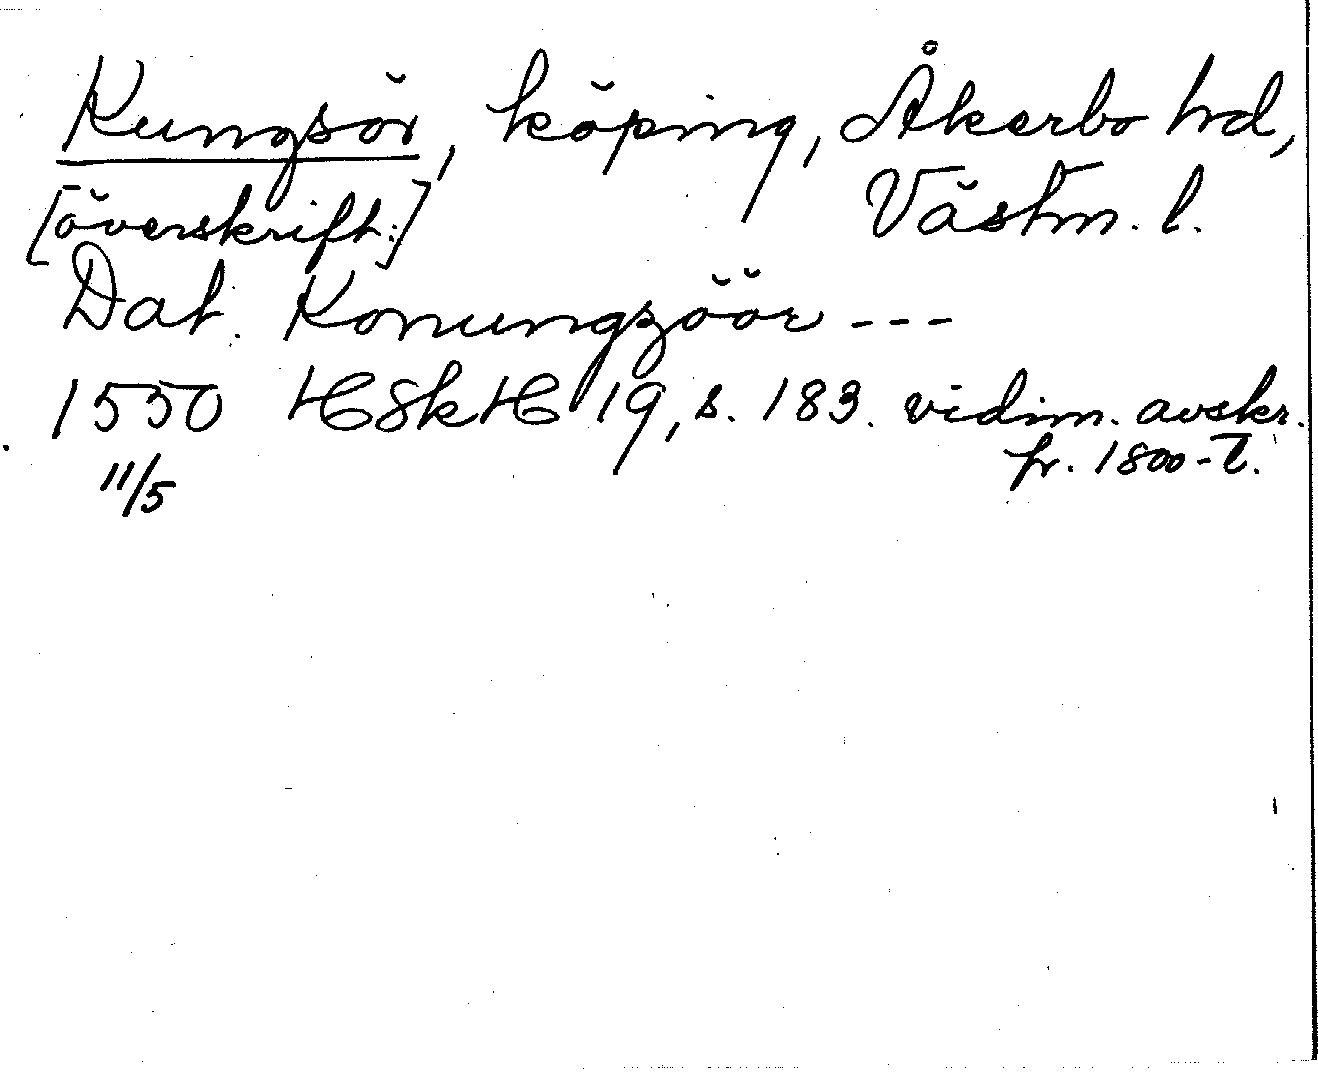 Kungsör, köping, Åkerbo hd,
[överskrift:] Västm. l.
Dat. Konungzöör ---
1550 HSkH 19, s. 183. vidim. avskr.
11/5 fr. 1800-t.